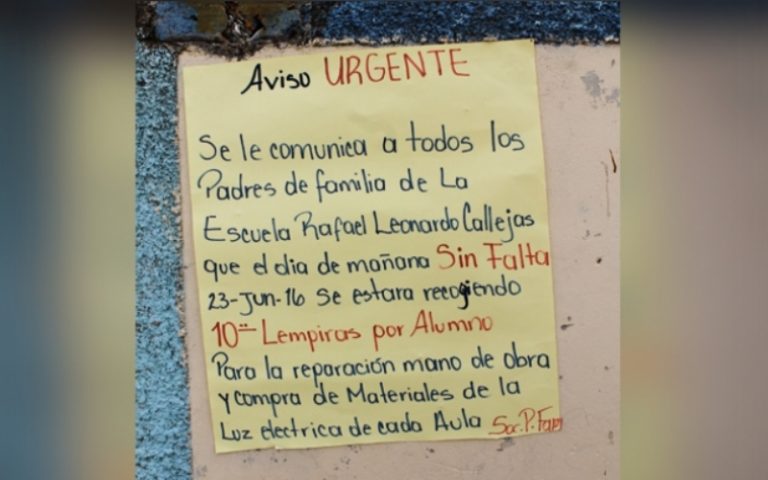 Aviso URGENTE
Se le comunica a todos los
Padres de familia de La
Escuela Rafael Leonardo Callejas
que el dia de mañana Sin Falta
23-Jun-16 Se estara recogiendo
10.00 Lempiras por Alumno
Para la reparación mano de obra
y compra de Materiales de la
Luz electrica de cada Aula Soc. P. Fam